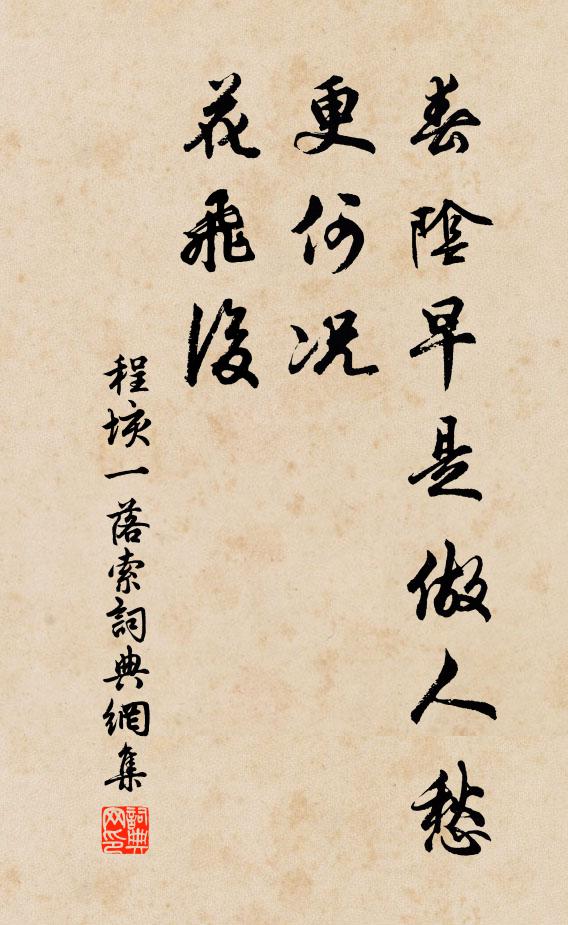 春陰早是做人愁
更何況
花飛後
程垓一落索詞典網集
詞典
网印